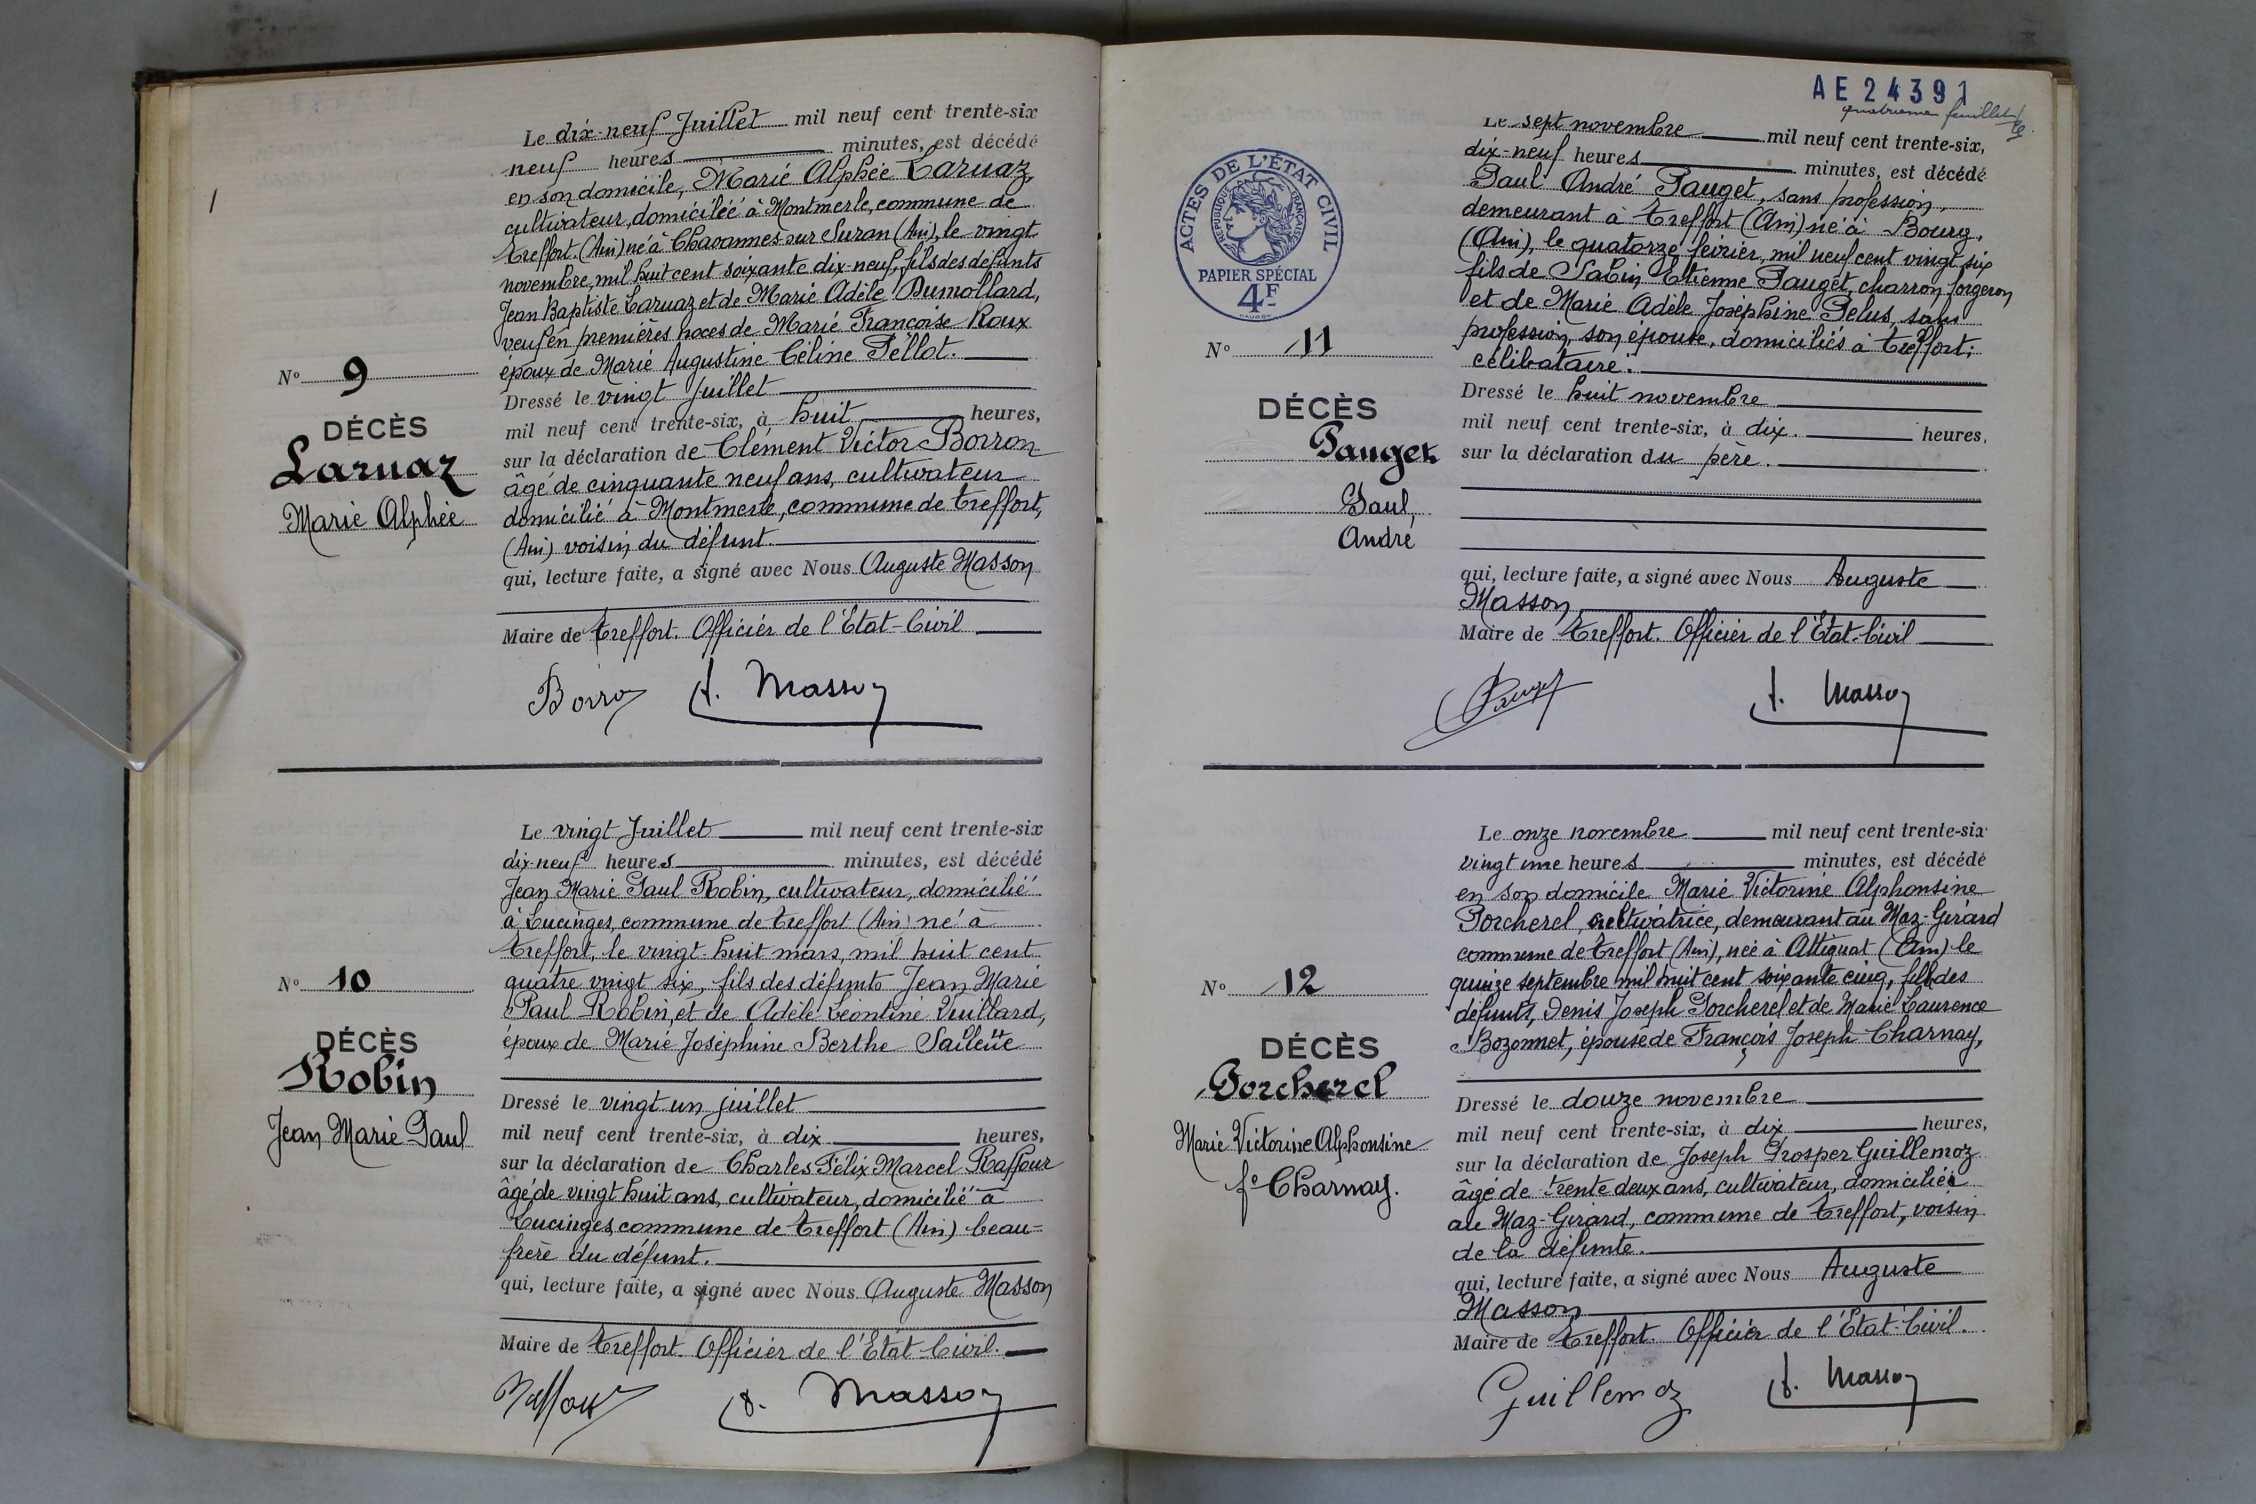 Le dix-neuf Juillet mil neuf cent trente-six
neuf heures minutes, est décédé
en son domicile, Marie Alphée Laruaz,
cultivateur, domicilié à Montmerle, commune de
Treffort (Ain) né à Chavannes sur Suran (Ain), le vingt
novembre, mil huit cent soixante dix-neuf, fils des défunts
Jean Baptiste Laruaz et de Marie Adèle Dumollard,
veuf en premières noces de Marie Françoise Roux
époux de Marie Augustine Céline Pellot.
Nº 9
DÉCÈS
Laruaz
Marie Alphée
Dressé le vingt Juillet
mil neuf cent trente-six, à huit heures,
sur la déclaration de Clément Victor Borron
âgé de cinquante neuf ans, cultivateur
domicilié à Montmerle, commune de Treffort,
(Ain) voisin du défunt.
qui, lecture faite, a signé avec Nous Auguste Masson
Maire de Treffort. Officier de l'Etat-Civil
Borron A. Masson
Le vingt Juillet mil neuf cent trente-six
dix-neuf heures minutes, est décédé
Jean Marie Paul Robin, cultivateur, domicilié
à Lucinges, commune de Treffort (Ain) né à
Treffort, le vingt-huit mars, mil huit cent
quatre vingt six, fils des défunts Jean Marie
Paul Robin, et de Adèle Léontine Vuillard,
époux de Marie Joséphine Berthe
Nº 10
DÉCÈS
Robin
Jean Marie Paul
Dressé le vingt un juillet
mil neuf cent trente-six, à dix heures,
sur la déclaration de Charles Félix Marcel Raffour
âgé de vingt huit ans, cultivateur, domicilié à
Lucinges, commune de Treffort (Ain) beau=
frère du défunt.
qui, lecture faite, a signé avec Nous Auguste Masson
Maire de Treffort. Officier de l'Etat-Civil.
Raffour A. Masson
AE 24391
quatrième feuillet
ACTES DE L'ÉTAT CIVIL
REPUBLIQUE FRANÇAISE
PAPIER SPÉCIAL
4F
Le sept novembre mil neuf cent trente-six,
dix-neuf heures minutes, est décédé
Paul André Pauget, sans profession,
demeurant à Treffort (Ain) né à Bourg,
(Ain), le quatorze février, mil neuf cent vingt six
fils de Sabin Etienne Pauget, charron forgeron
et de Marie Adèle Joséphine Pelus, sans
profession, son épouse, domiciliés à Treffort;
célibataire.
Nº 11
DÉCÈS
Pauget
Paul,
André
Dressé le huit novembre
mil neuf cent trente-six, à dix. heures,
sur la déclaration du père.
qui, lecture faite, a signé avec Nous Auguste
Masson
Maire de Treffort. Officier de l'Etat-Civil
Pauget A. Masson
Le onze novembre mil neuf cent trente-six
vingt une heures minutes, est décédé
en son domicile Marie Victorine Alphonsine
Porcherel, cultivatrice, demeurant au Maz-Girard
commune de Treffort (Ain), née à Attignat (Ain) le
quinze septembre mil huit cent soixante cinq, fille des
défunts, Denis Joseph Porcherel et de Marie Laurence
Bozonnet, épouse de François Joseph Charnay,
Nº 12
DÉCÈS
Porcherel
Marie Victorine Alphonsine
fe Charnay.
Dressé le douze novembre
mil neuf cent trente-six, à dix heures,
sur la déclaration de Joseph Prosper Guillemoz
âgé de trente deux ans, cultivateur, domicilié
au Maz-Girard, commune de Treffort, voisin
de la défunte.
qui, lecture faite, a signé avec Nous Auguste
Masson
Maire de Treffort. Officier de l'Etat-Civil.
Guillemoz A. Masson